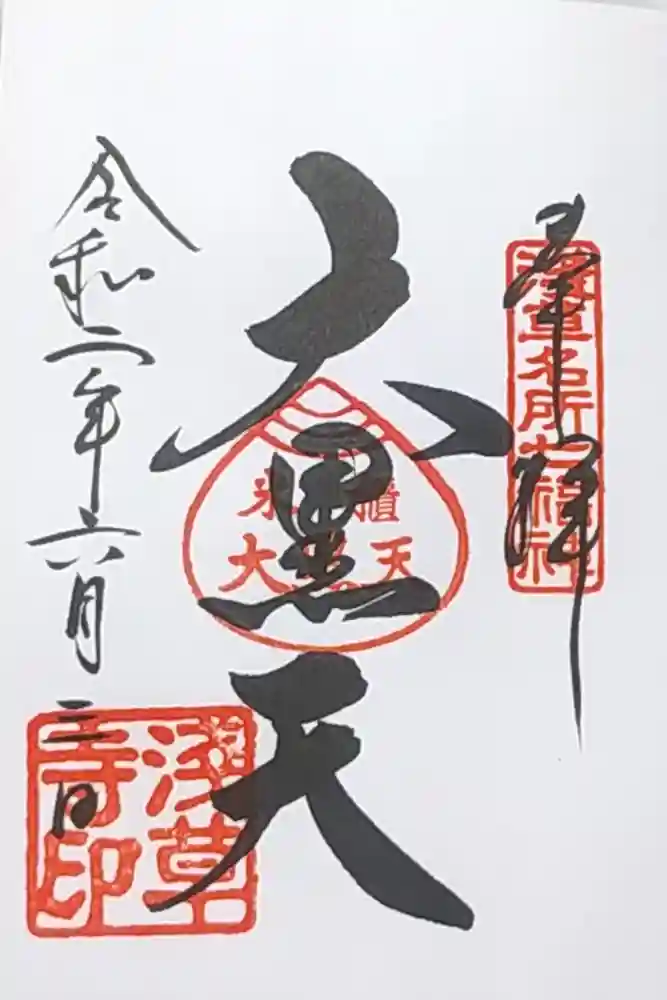 奉拝
浅草名所七福神
大黒天
米櫃
大黒天
令和二年六月三日
浅草
寺印